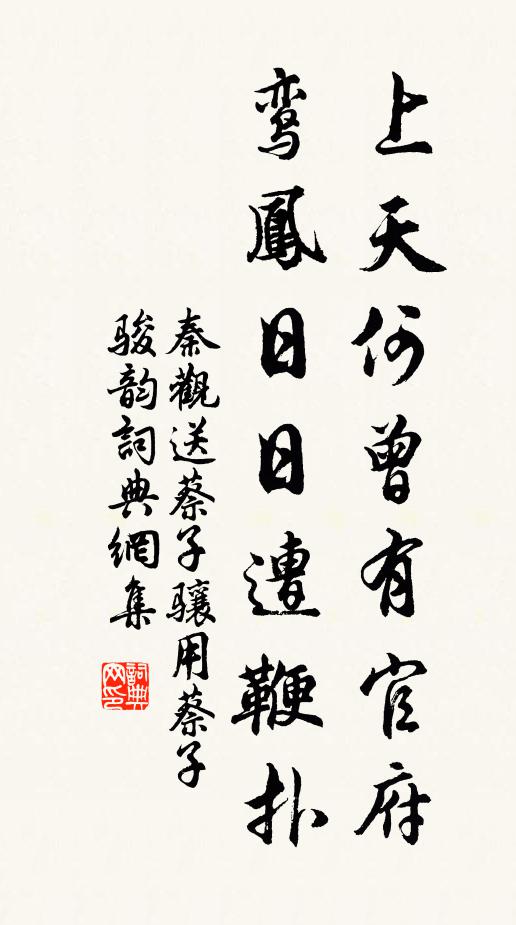 上天何曾有官府
鸾鳳日日遭鞭扑
秦觀送蔡子驤用蔡子
駿韵詞典網集
詞典网印